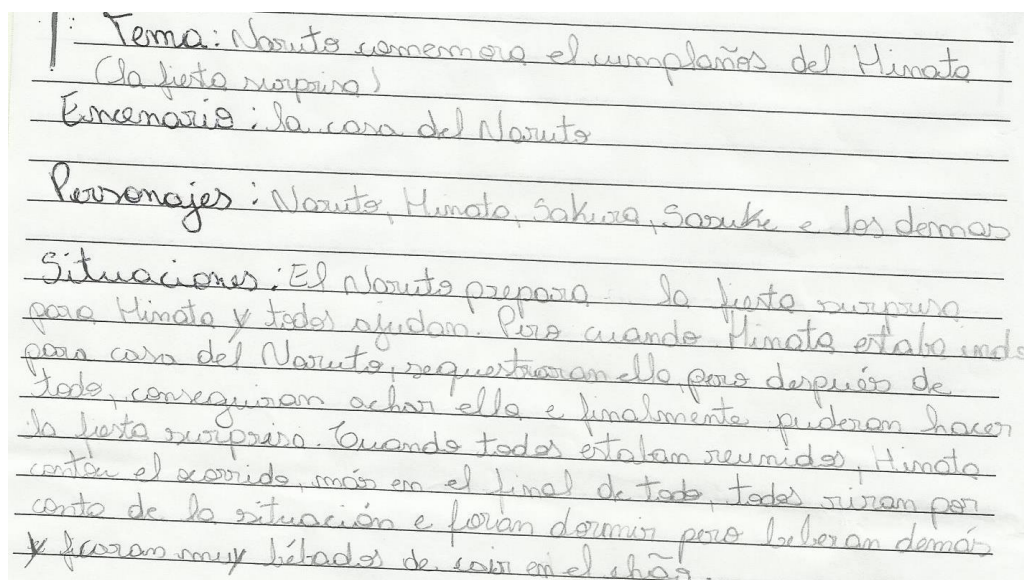 Tema: Naruto comemora el cumplañes del Hinata
(la fiesta surprisa)
Encenario: la casa del Naruto
Personajes: Naruto, Hinata, Sakura, Sasuke e los demas
Situaciones: El Naruto prepara la fiesta surprisa
para Hinata y todos ajudam. Pero cuando Hinata estaba indo
para casa del Naruto, sequestraran ella, pero después de
todo, conseguiran achar ella e finalmente puderan hacer
la fiesta surprisa. Cuando todos estaban reunidos, Hinata
contou el ocorrido, más en el final de todo, todos riran por
conta de la situación e foran dormir pero beberan demás
y ficaran muy bébados de cair en el chão.